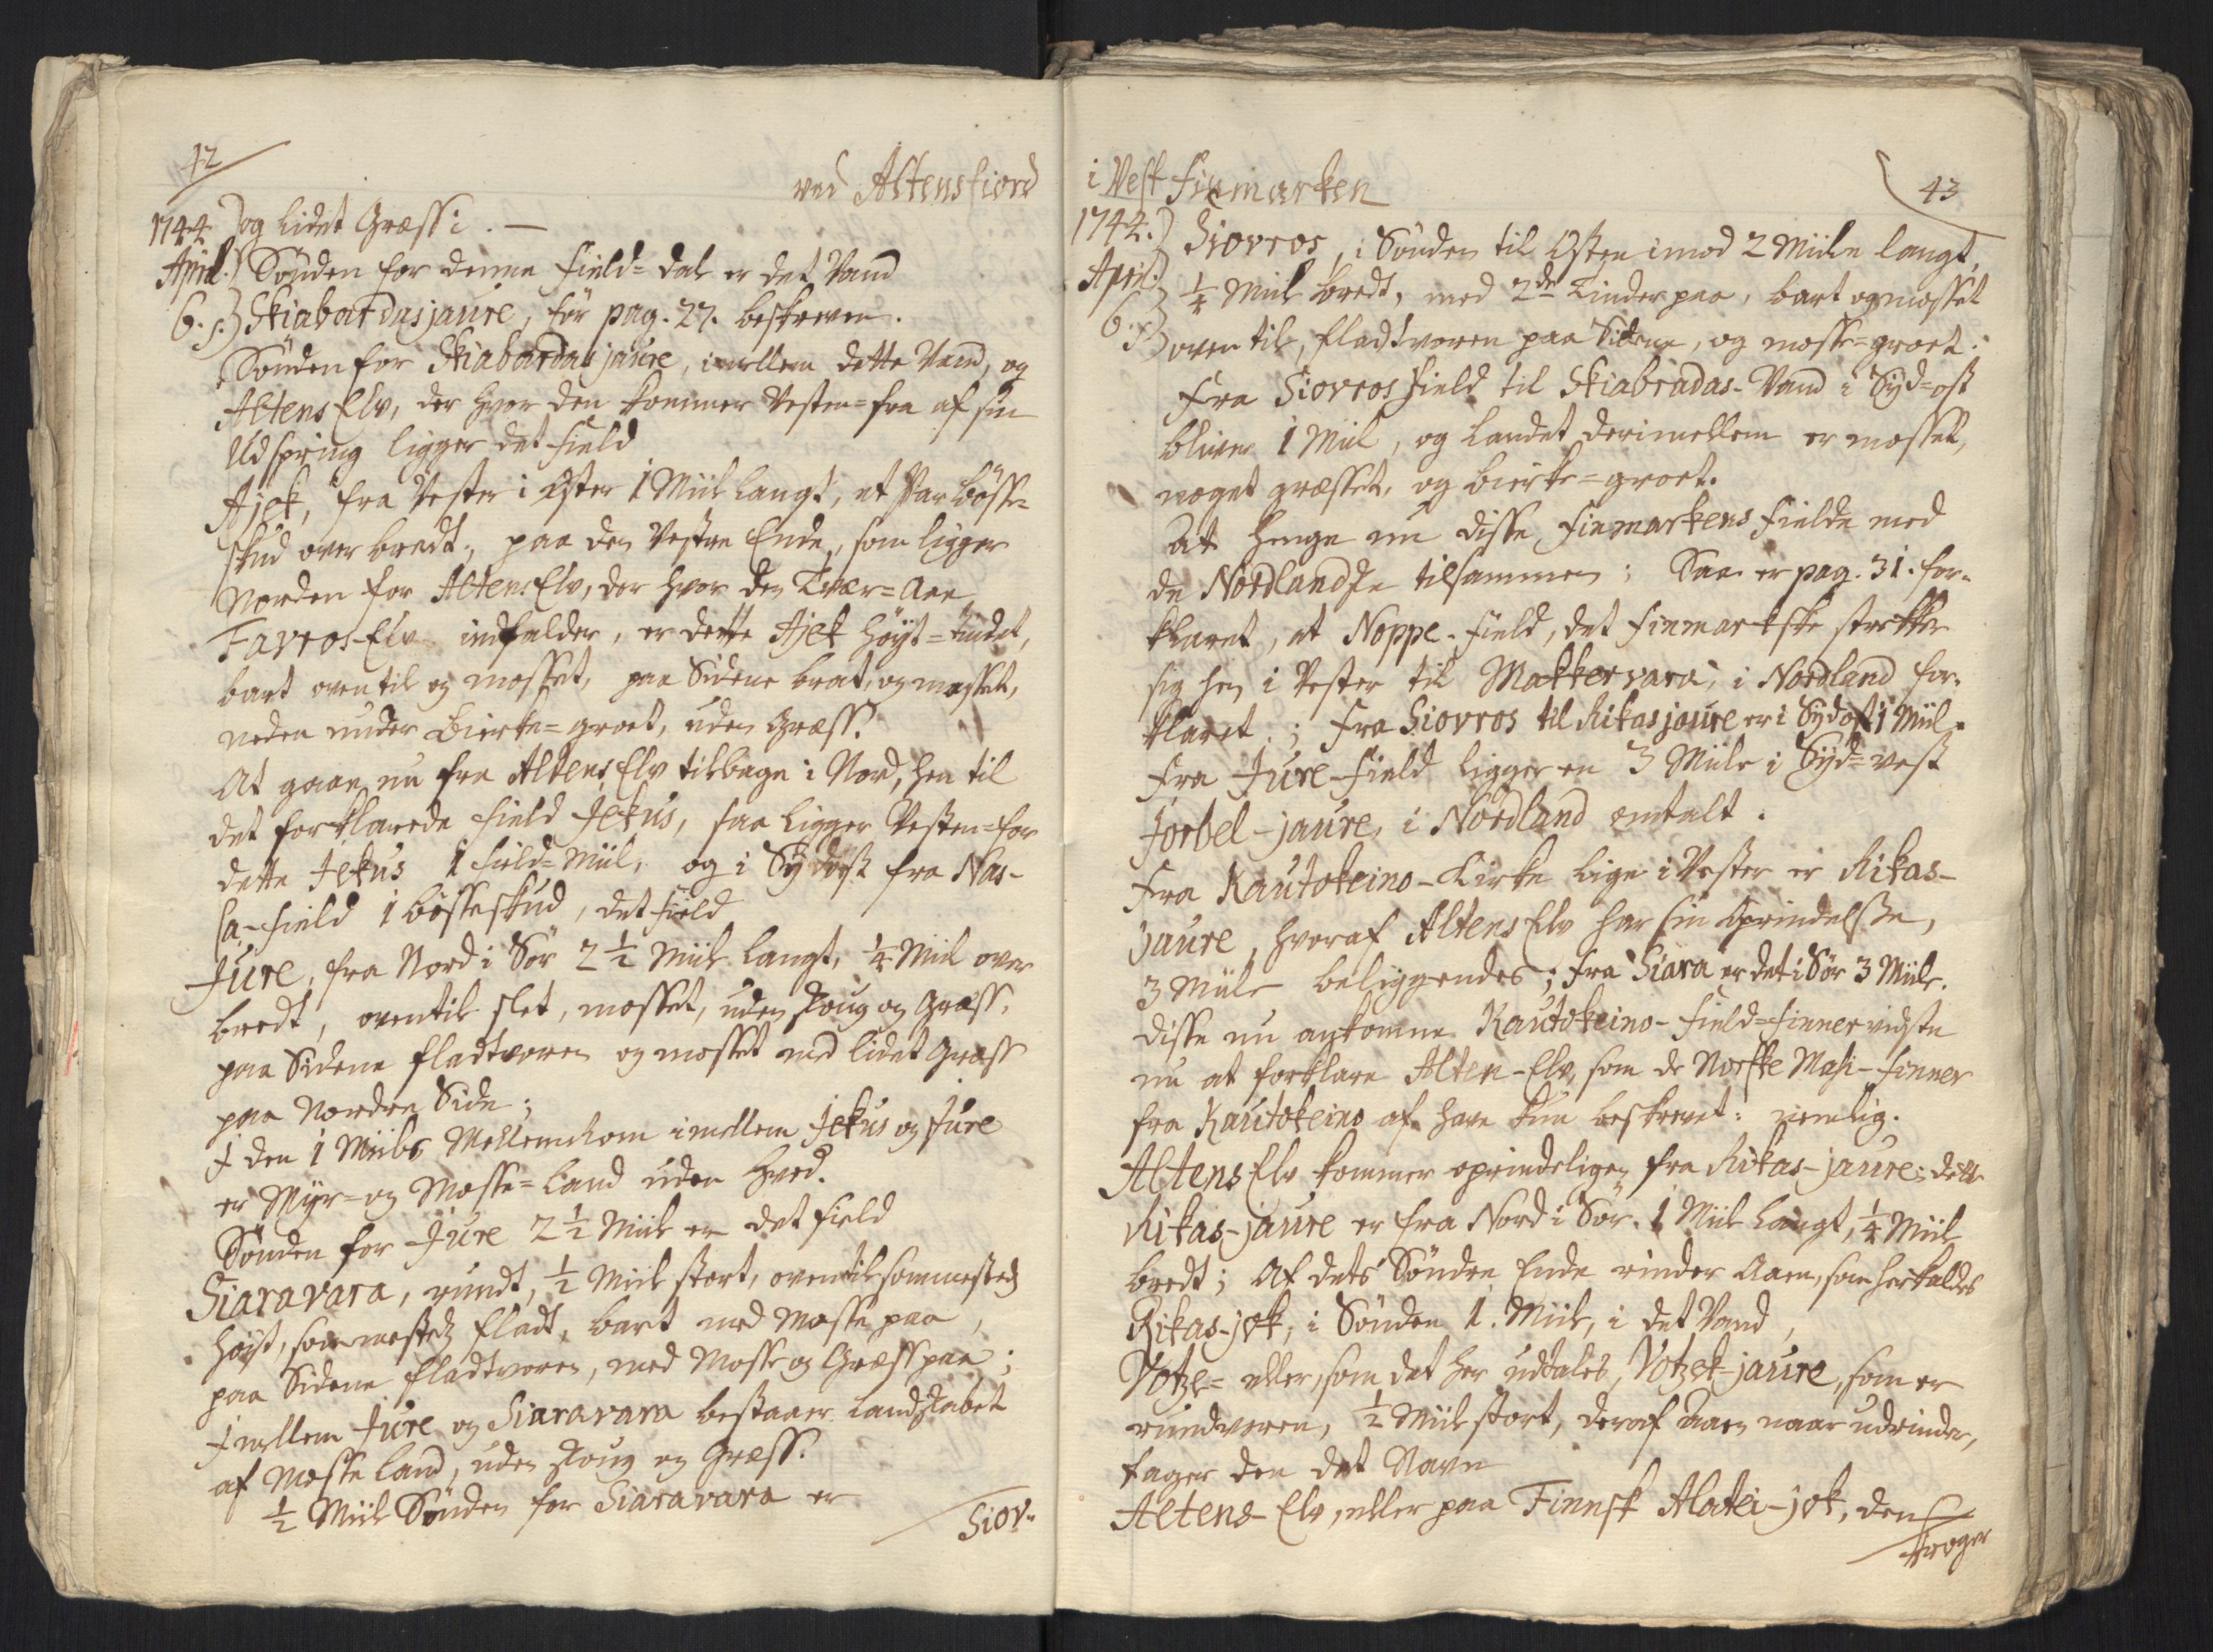 42
ved Altensfiord
1744. og lidet Græss i. —
April. Sønden for denne Field-dal er det Vand
6. s. Skiabardasjaure, før pag. 27. beskreven.
Sønden for Skiabardasjaure, imellem dette Vand, og
Altens Elv, der hvor den kommer Vesten-fra af sin
Udspring ligger det Field
Ajek, fra Vester i Øster 1 Miil langt, et Par bösse-
skud over bredt, paa den Vestre Ende, som ligger
Norden for Altens Elv, der hvor den Tvær-Aae
Favros-Elv indfalder, er dette Ajek høyt-tindet,
bart oven til og mosset, paa Siderne brat, og mosset,
neden under Birke-groet, uden Græss.
At gaae nu fra Altens Elv tilbage i Nord, hen til
det forklarede Field Jekus, saa ligger Vesten-for
dette Jekus 1 Field-Miil, og i Sydost fra Nas-
sa-Field 1 bösseskud, det Field
Jure, fra Nord i Sør 2 1/2 Miil langt, 1/4 Miil over
bredt, oventil slet, mosset, uden skoug og Græss,
paa Siderne fladtvoren og mosset med lidet Græss
paa Nordre Side;
J den 1 Miils Mellemrom imellem Jekus og Jure
er Myr- og Mosse-Land uden Hved.
Sønden for Jure 2 1/2 Miil er det Field
Siaravara, rundt, 1/2 Miil stort, oventil sommesteds
høyt, sommesteds fladt, bart med Mosse paa,
paa Siderne fladtvoren, med Mosse og Græss paa;
Jmellem Jure og Siaravara bestaaer Landskabet
af Mosse Land, uden skoug og Græss.
1/2 Miil Sønden for Siaravara er
Siov-
i Vest Finmarken
43
1744. Siovros, i Sønden til Østen imod 2 Miile langt,
April. 1/4 Miil bredt, med 2de Tinder paa, bart og mosset
6. s. oven til, fladtvoren paa Siderne, og mosse-groet.
Fra Siovros Field til Skiabradas-Vand i Syd-ost
bliver 1 Miil, og Landet derimellem er mosset,
noget græsset, og birke-groet.
At henge nu disse Finmarkens Fielde med
de Nordlandske tilsammen; Saa er pag. 31. for-
klaret, at Noppe-Field, det Finmarkske strekker
sig hen i Vester til Makkervara, i Nordland for-
klaret; Fra Siovros til Rikasjaure er i Sydost 1 Miil.
Fra Jure-Field ligger en 3 Miile i Syd-vest
Jorbel-jaure, i Nordland omtalt.
Fra Kautokeino-Kirke lige i Vester er Rikas-
jaure, hvoraf Altens Elv har sin Oprindelse,
3 Miile beliggendes; fra Siara er det i Sør 3 Miile.
Disse nu ankomne Kautokeino-Field-Finner vidste
nu at forklare Alten-Elv, som de Norske Masi-Finner
fra Kautokeino af have kun beskrevet: nemlig.
Altens Elv kommer oprindeligen fra Rikas-jaure; dette
Rikas-jaure er fra Nord i Sør 1 Miil langt, 1/4 Miil
bredt; Af dets Søndre Ende rinder Aaen, som her kaldes
Rikas-jok, i Sønden 1. Miil, i det Vand,
Votze- eller, som det her udtales, Votzek-jaure, som er
rundvoren, 1/2 Miil stort, deraf Aaen naar udrinder,
tager den det Navn
Altens-Elv, eller paa Finnsk Alatei-jok, den
kroger